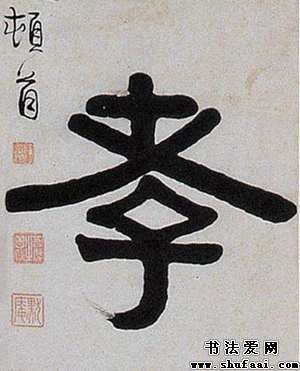 孝
頓首
书法爱网
www.shufaai.com